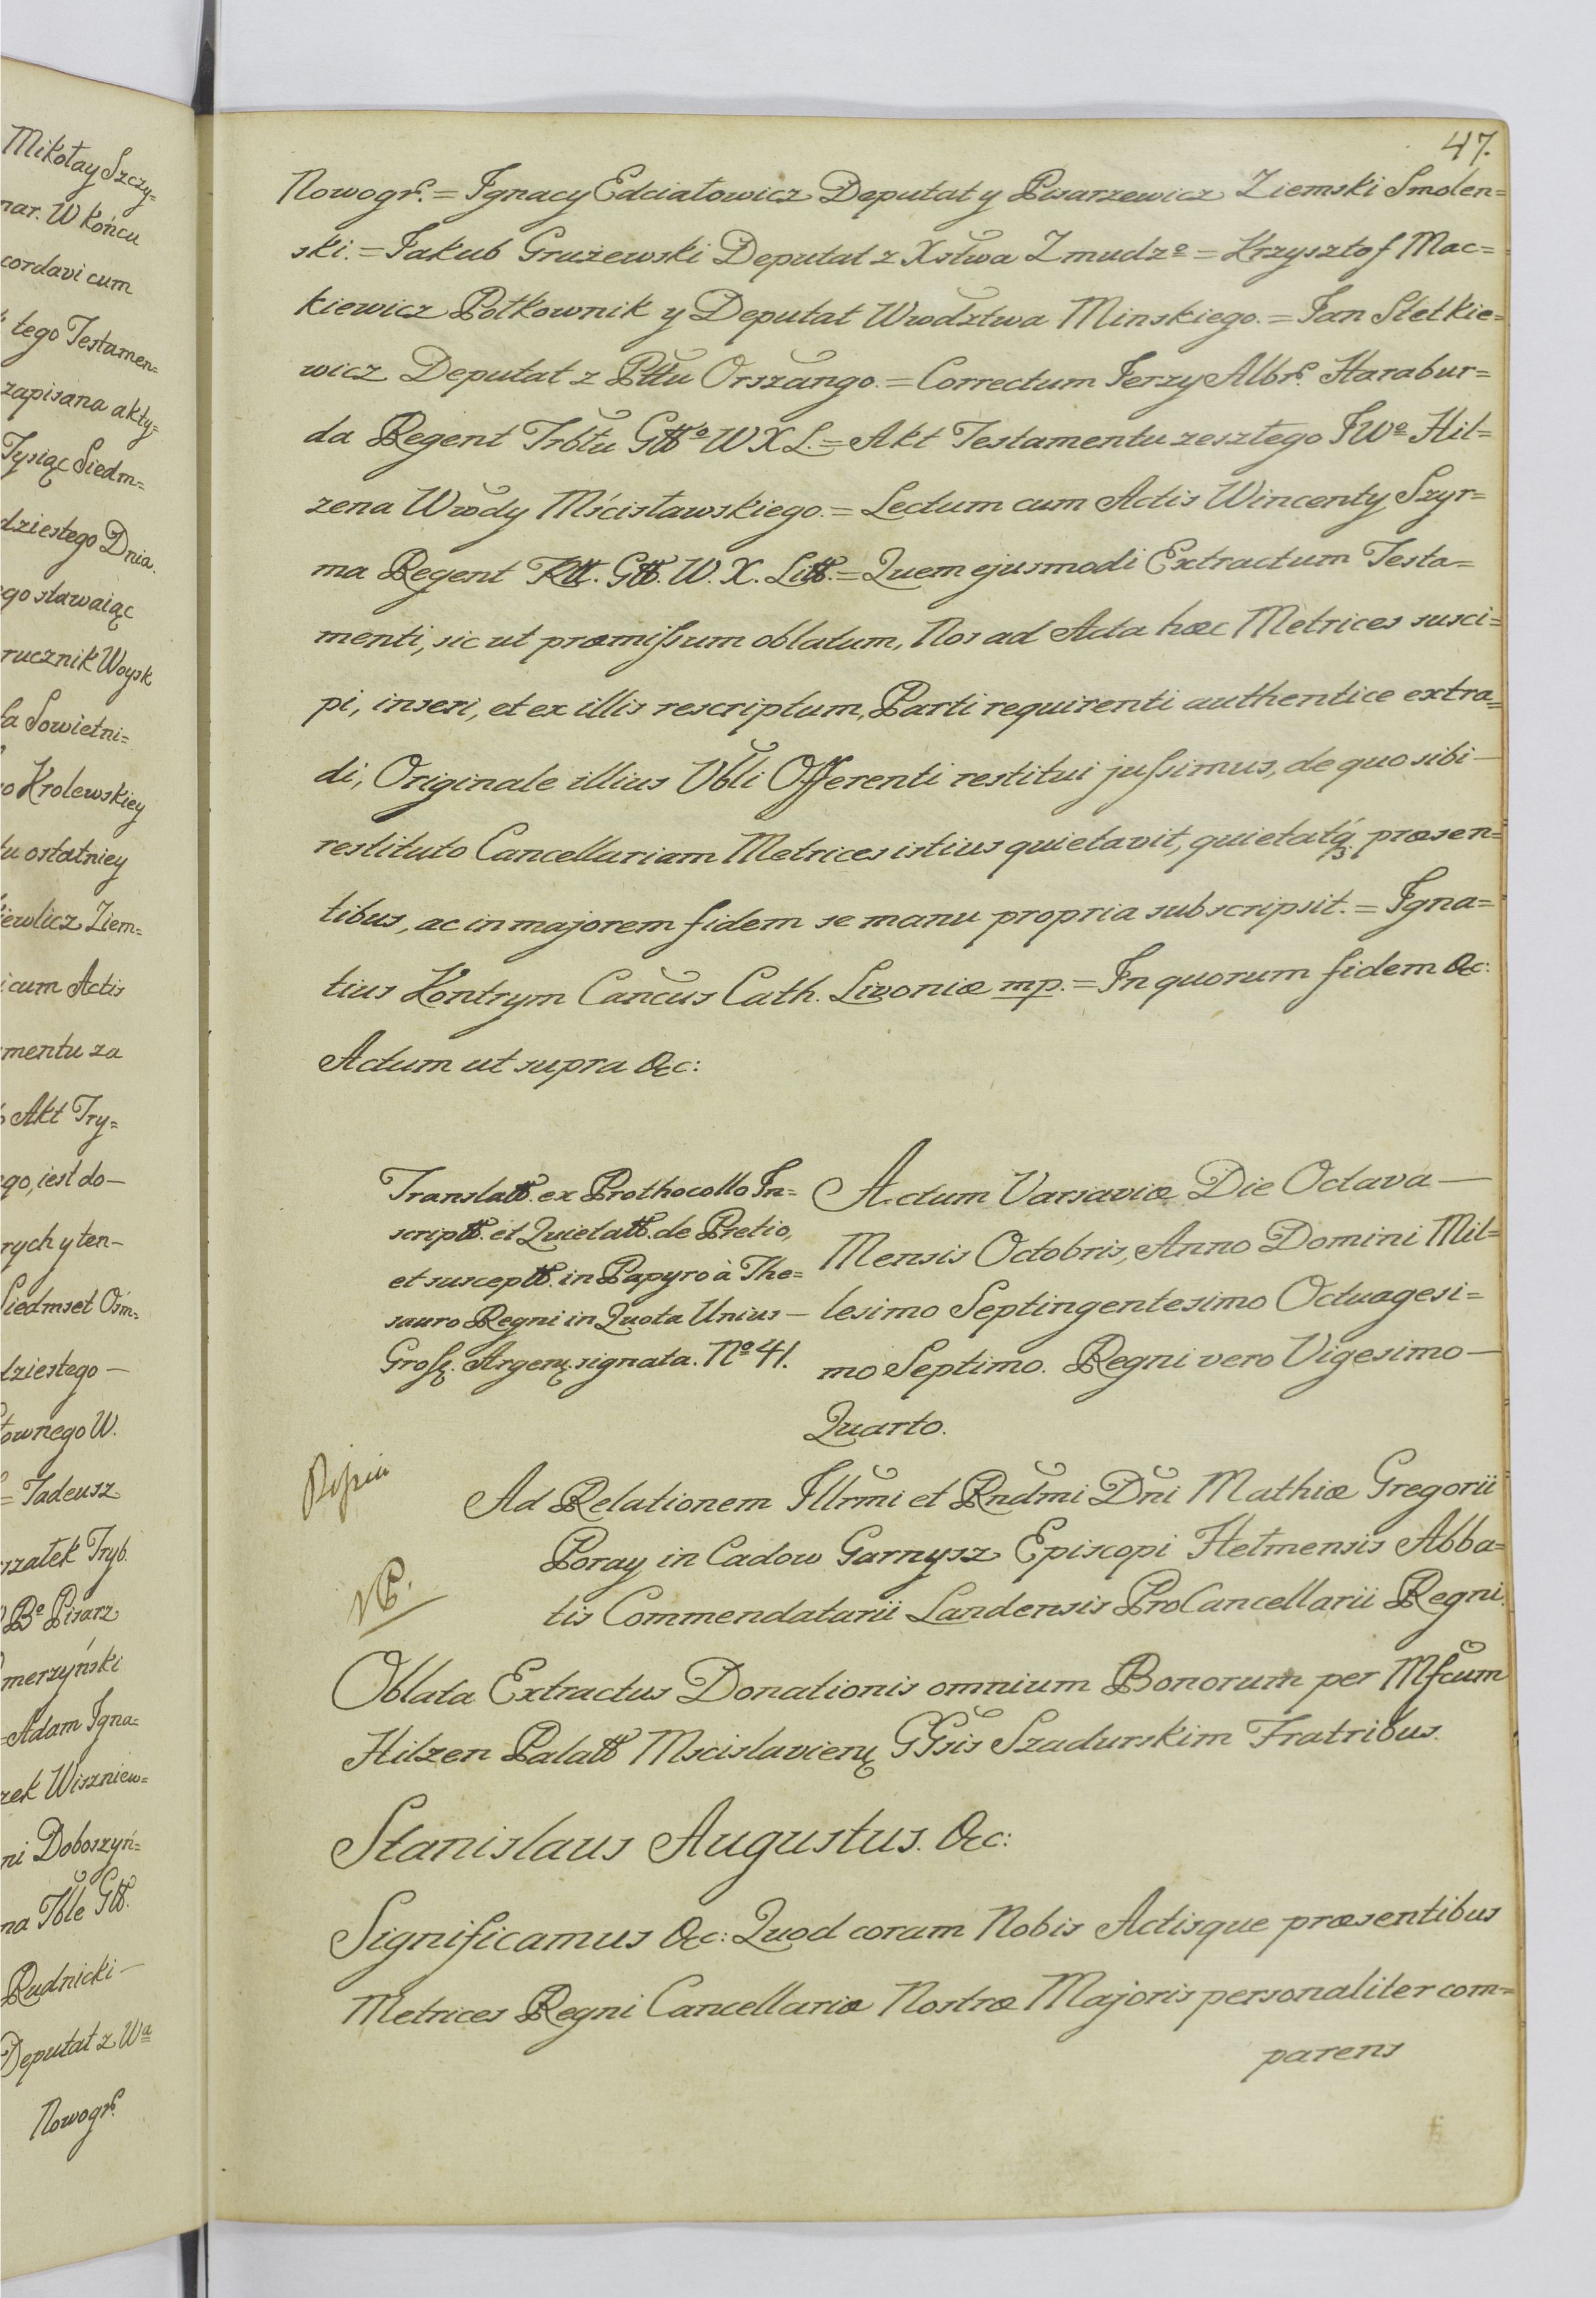 Mikołay Szczy=
nar. W końcu
cordavi cum
tego Testamen=
zapisana akty=
Tysiąc Siedm=
dziestego Dnia.
go stawaiąc
rucznik Woysk
ła Sowietni=
o Krolewskiey
tu ostatniey
iewicz Ziem=
i cum Actis
mentu za
Akt Try=
ego, iest do—
rych y ten—
Siedmset Ośm=
dziestego—
łownego W.
= Tadeusz
rszałek Tryb.
Bo Pisarz
merzyński
=Adam Igna=
zek Wiszniew=
ni Doboszyń=
na Tble Gtt.
Rudnicki—
Deputat z Wa
Nowogr.
47.
Nowogr. = Ignacy Edciatowicz Deputat y Pisarzewicz Ziemski Smolen=
ski. = Jakub Grużewski Deputat z Xstwa Zmudzo = Krzysztof Mac=
kiewicz Połkownik y Deputat Wwodztwa Minskiego. = Jan Stetkie=
wicz Deputat z Pttu Orszango. = Correctum Jerzy Albr. Harabur=
da Regent Trbtu Gtto W X L. = Akt Testamentu zeszłego JWo Hil=
zena Wwdy Mścisławskiego. = Lectum cum Actis Wincenty Szyr=
ma Regent Ttt. Gtt. W. X. Litt. = Quem ejusmodi Extractum Testa=
menti, sic ut præmissum oblatum, Nos ad Acta hæc Metrices susci=
pi, inseri, et ex illis rescriptum, Parti requirenti authentice extra=
di, Originale illius Vbli Offerenti restitui jussimus, de quo sibi—
restituto Cancellariam Metrices istius quietavit, quietatq. præsen=
tibus, ac in majorem fidem se manu propria subscripsit. = Igna=
tius Kontrym Cancus Cath. Livoniæ mp. = In quorum fidem &c:
Actum ut supra &c:
Translatt. ex Prothocollo In=
scriptt. et Quietatt. de Pretio,
et susceptt. in Papyro à The=
sauro Regni in Quota Unius—
Gross. Argen. signata. No 41.
Actum Varsaviæ Die Octava—
Mensis Octobris, Anno Domini Mil=
lesimo Septingentesimo Octuagesi=
mo Septimo. Regni vero Vigesimo—
Quarto.
Ad Relationem Illrmi et Rndmi Dni Mathiæ Gregorii
Poray in Cadow Garnysz Episcopi Hełmensis Abba=
tis Commendatarii Landensis ProCancellarii Regni.
Oblata Extractus Donationis omnium Bonorum per Mfcum
Hilzen Palatt Mscislavien. GGsis Szadurskim Fratribus.
Stanislaus Augustus. &c:
Significamus &c: Quod coram Nobis Actisque præsentibus
Metrices Regni Cancellariæ Nostræ Majoris personaliter com=
parens